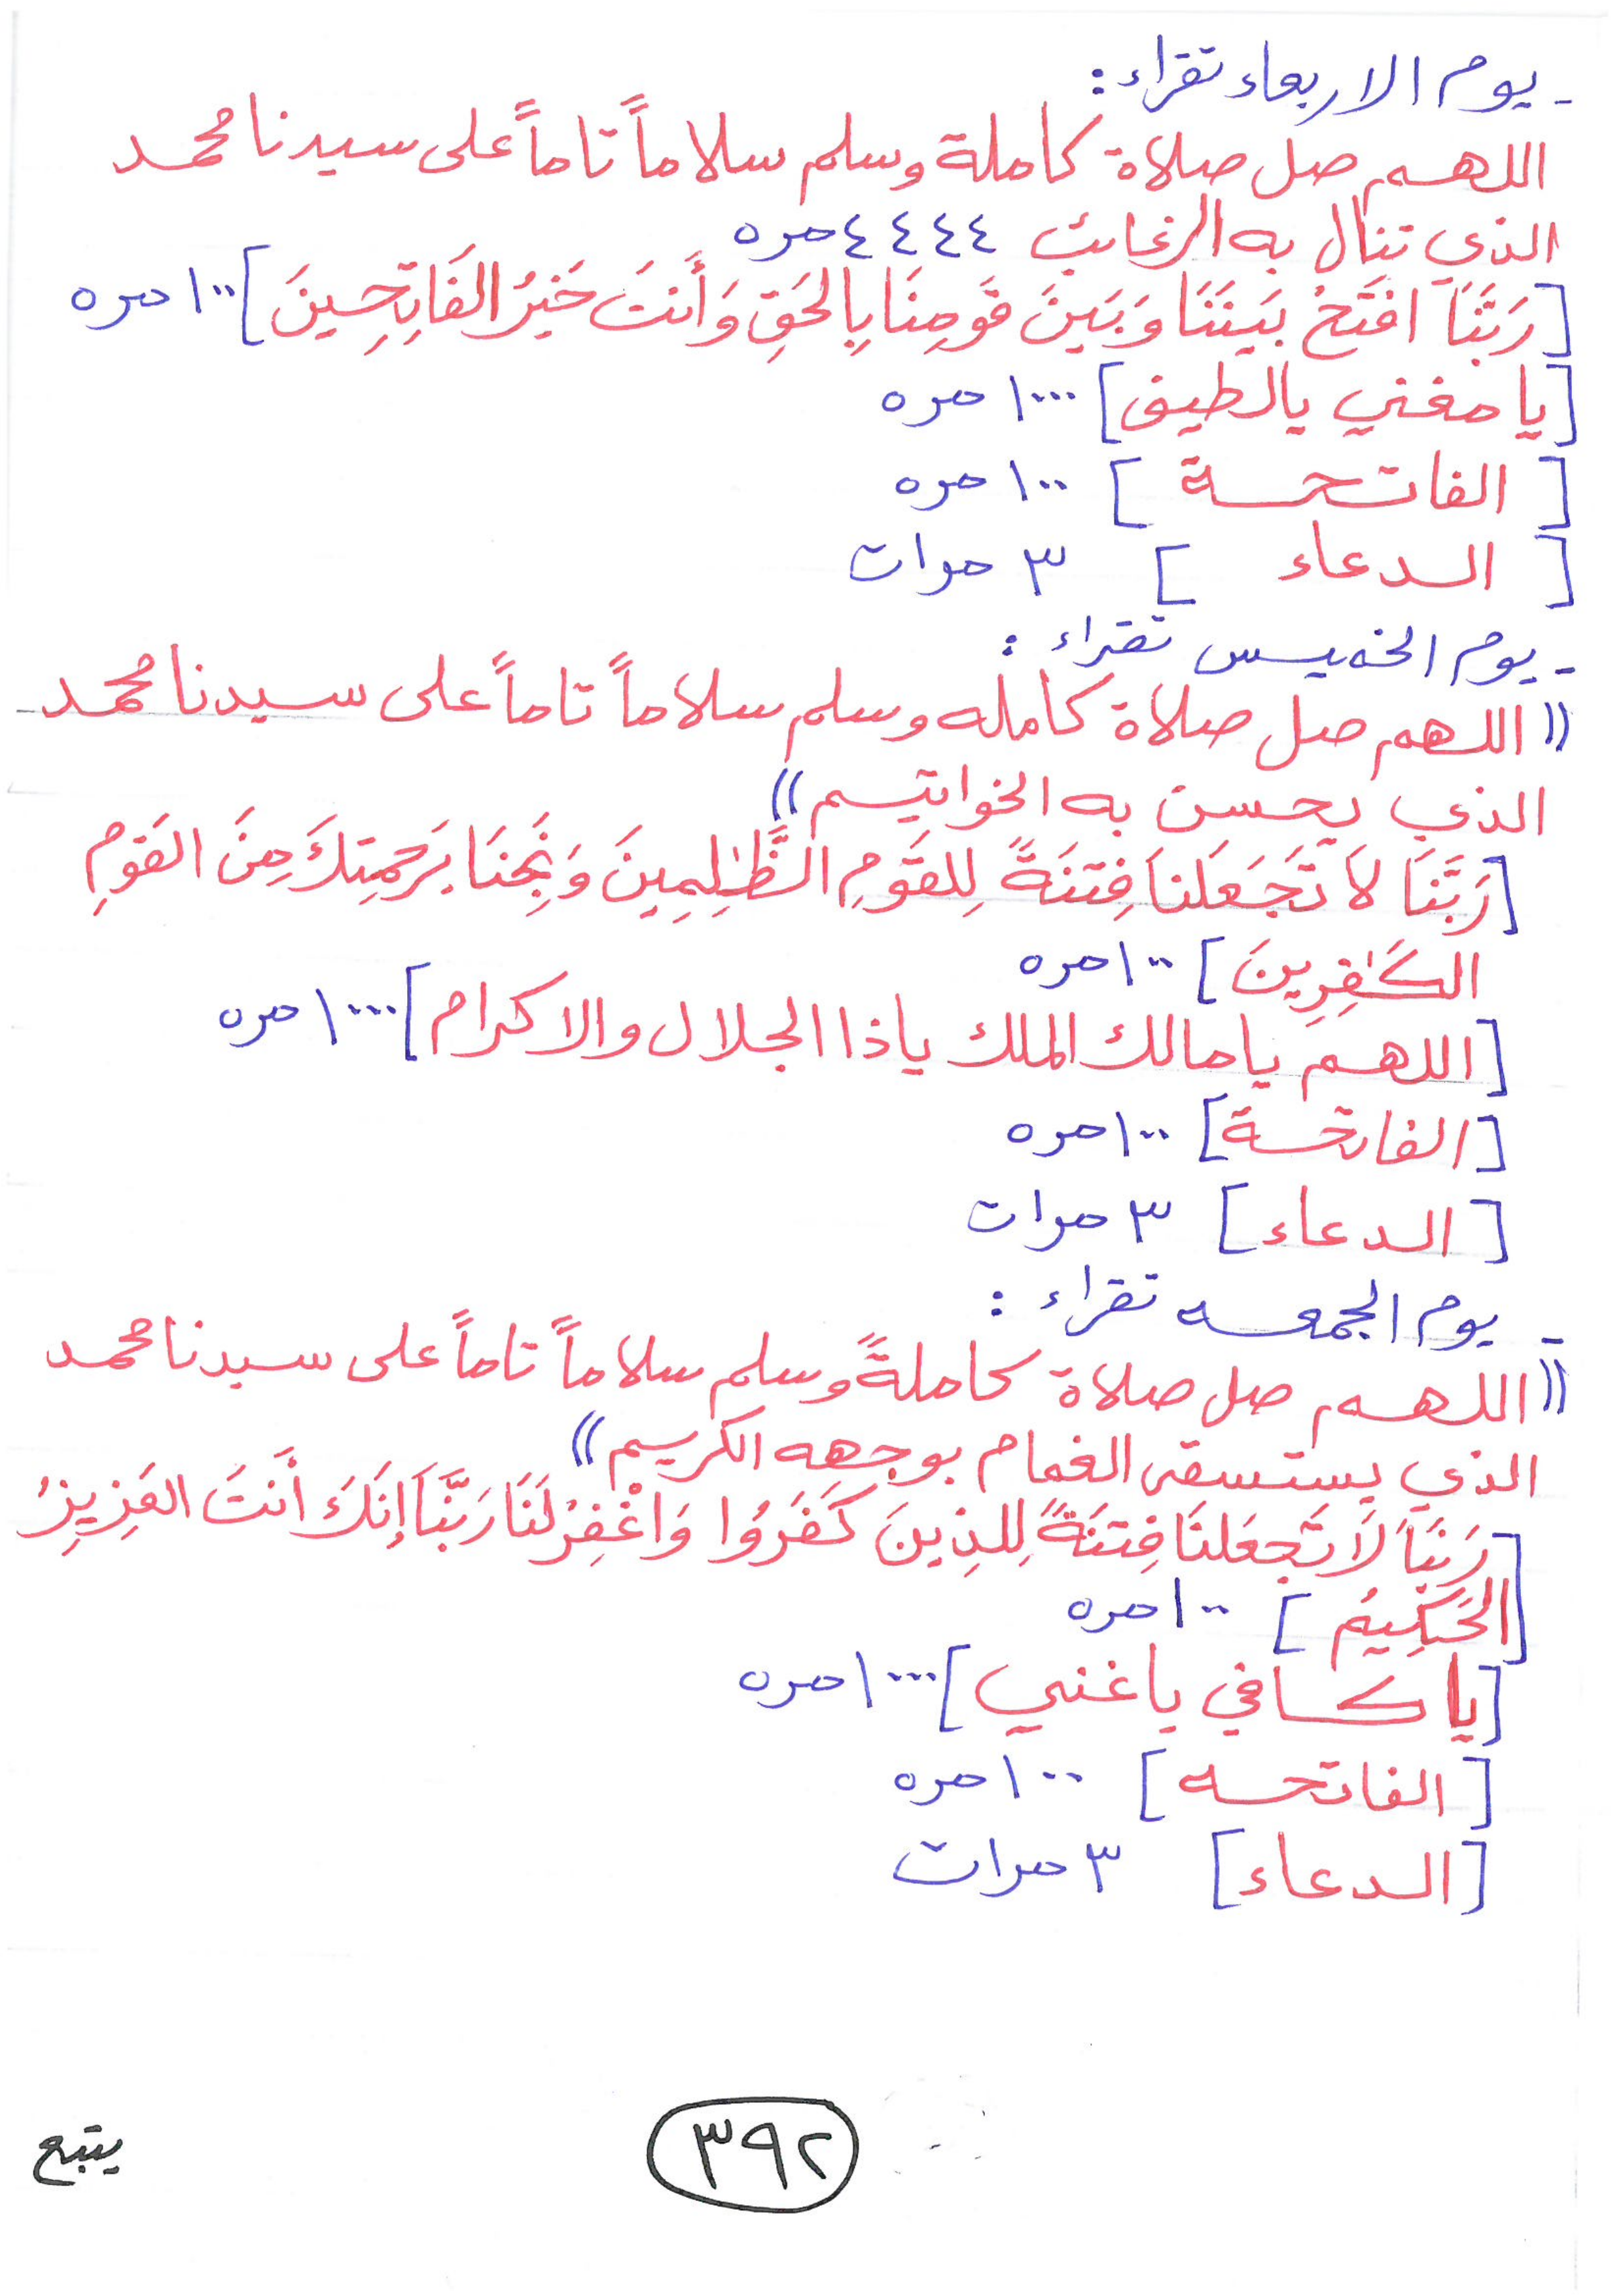 - يوم الاربعاء تقراء :
اللهم صل صلاة كاملة وسلم سلاماً تاماً على سيدنا محمد
الذي تنال به الرغائب ٤٤٤٤ مره
[رَبَّنَا افتَحْ بَينَنَا وَبَينَ قَومِنَا بِالحَقِ وَأَنتَ خَيرُ الفَاتِحِينَ] ١٠٠ مره
[يا مغني يالطيف] ١٠٠٠ مره
[ الفاتحة ] ١٠٠ مره
[ الدعاء ] ٣ مرات
- يوم الخميس تقراء :
(( اللهم صل صلاة كامله وسلم سلاماً تاماً على سيدنا محمد
الذي يحسن به الخواتيم ))
[رَبَّنَا لاَ تَجَعَلنَا فِتنَةً لِلقَومِ الظَّٰلِمِينَ وَنَجِّنَا بِرَحمِتِكَ مِنَ القَومِ
الكَٰفِرِينَ] ١٠٠ مره
[اللهم يا مالك الملك ياذا الجلال والاكرام] ١٠٠٠ مره
[الفاتحة] ١٠٠ مره
[الدعاء] ٣ مرات
- يوم الجمعه تقراء :
(( اللهم صل صلاة كاملةً وسلم سلاماً تاماً على سيدنا محمد
الذي يستسقى الغمام بوجهه الكريم ))
[رَبَّنَا لاَ تَجعَلنَا فِتنَةً لِلذِينَ كَفَرُوا وَاغْفِرْ لَنَا رَبَّنَا إِنَكَ أَنتَ العَزِيزُ
الحَكِيمُ] ١٠٠ مره
[يا كافي ياغني] ١٠٠٠ مره
[ الفاتحه ] ١٠٠ مره
[الدعاء] ٣ مرات
٣٩٢
يتبع